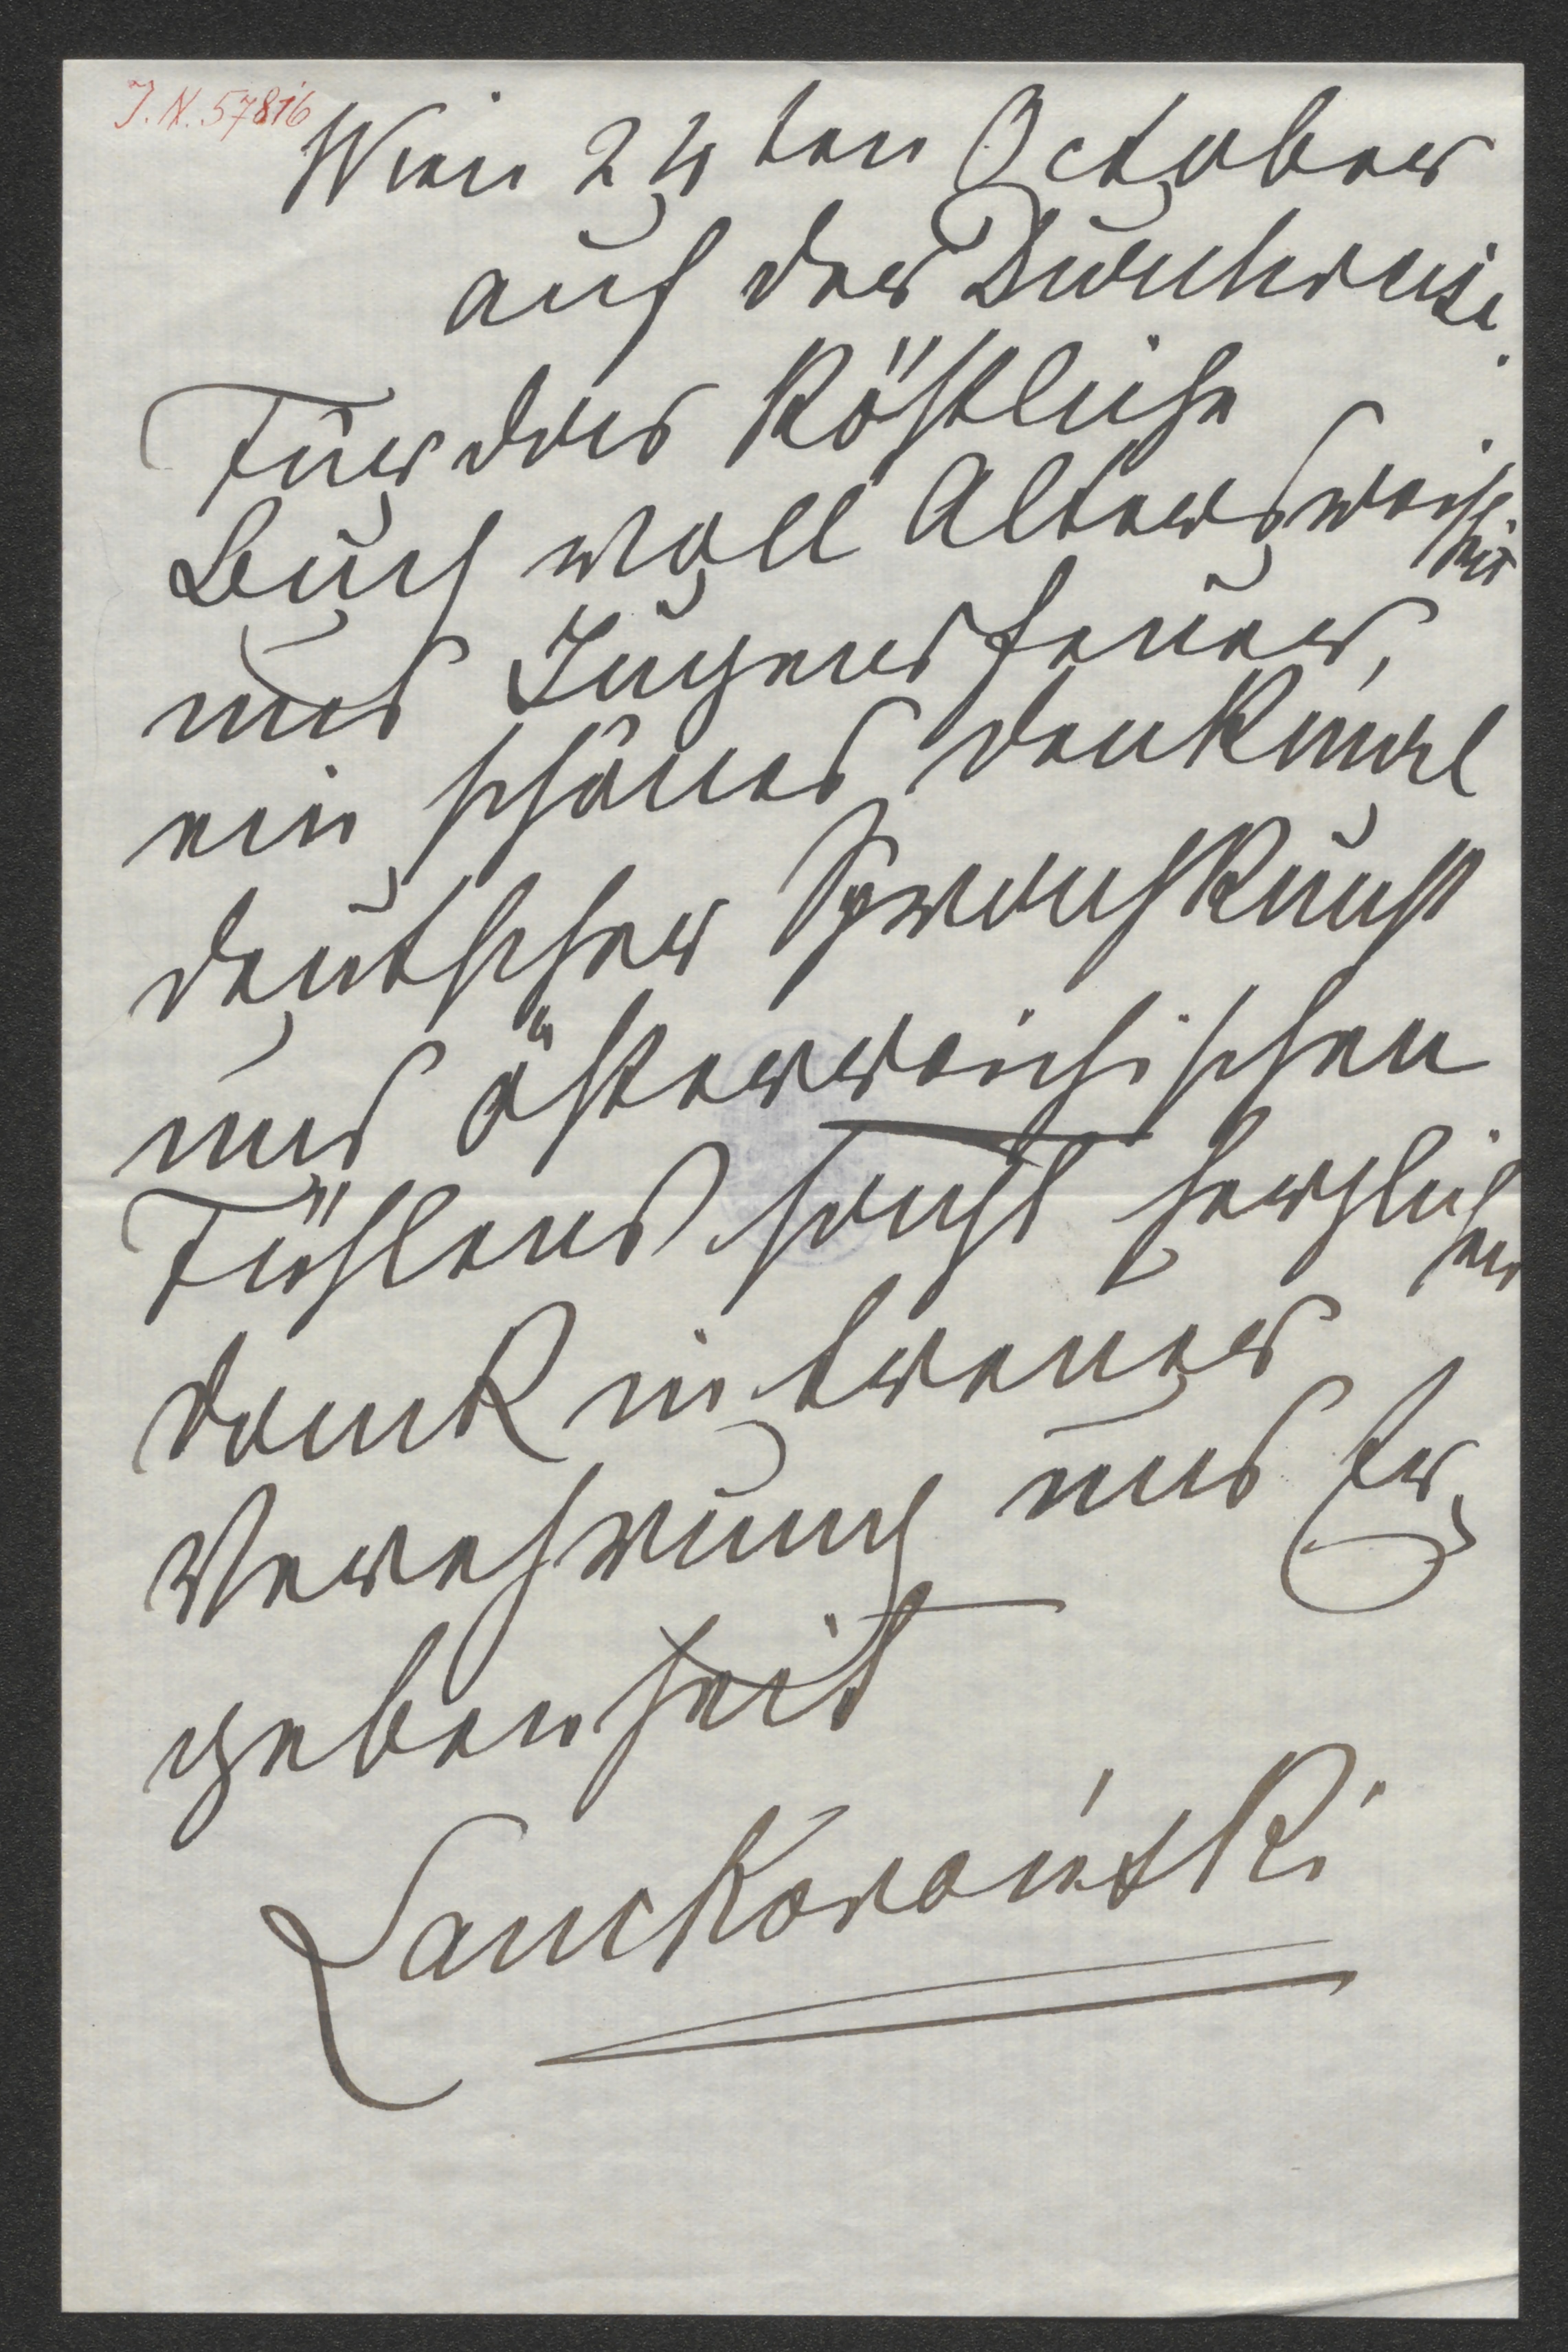 J. N. 57816
Wien 24ten October
auf der Durchreise.
Für das köstliche
Buch voll Altersweisheit
und Jugendfeuer,
ein schönes Denkmal
deutscher Sprachkunst
und österreichischen
Fühlens sagt herzlichen
Dank in treuer
Verehrung und Er,
gebenheit
Lanckoroński